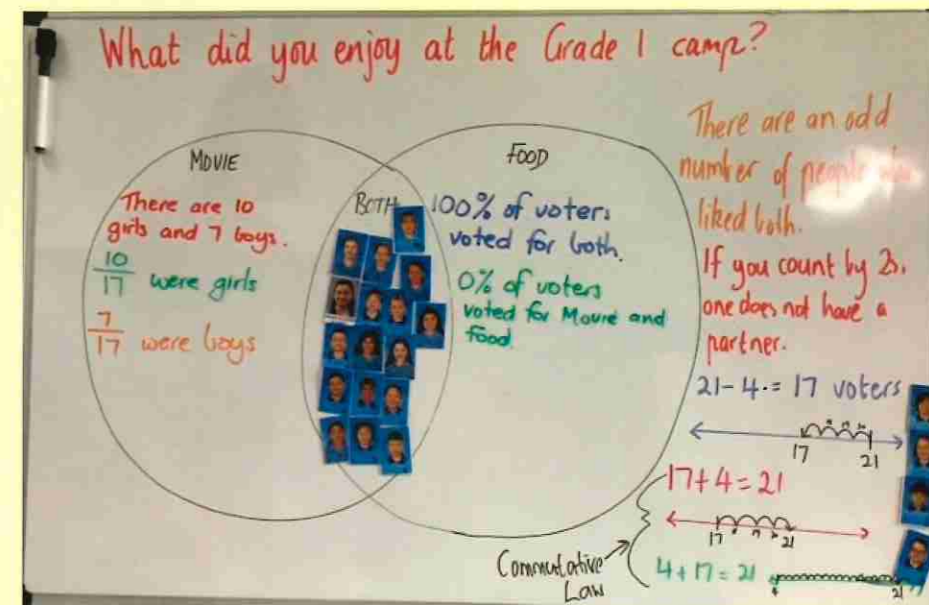 What did you enjoy at the Grade 1 camp?
MOVIE
There are 10
girls and 7 boys.
10
17 were girls
7
17 were boys
BOTH
FOOD
100% of voters
voted for both.
0% of voters
voted for Movie and
Food.
There are an odd
number of people who
liked both.
If you count by 2s,
one does not have a
partner.
21-4.= 17 voters
17 21
17+4=21
17 21
Commutative
Law
4+17=21
4 21